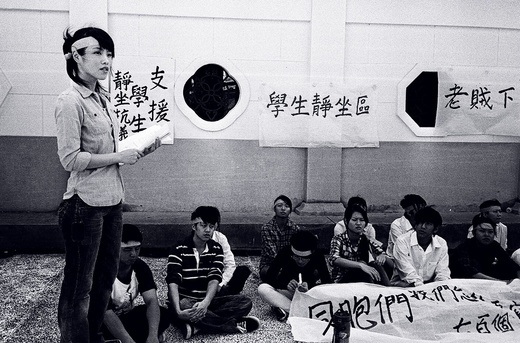 支援
學生
靜坐抗議
學生靜坐區
老賊下
同胞們我們怎
七百個